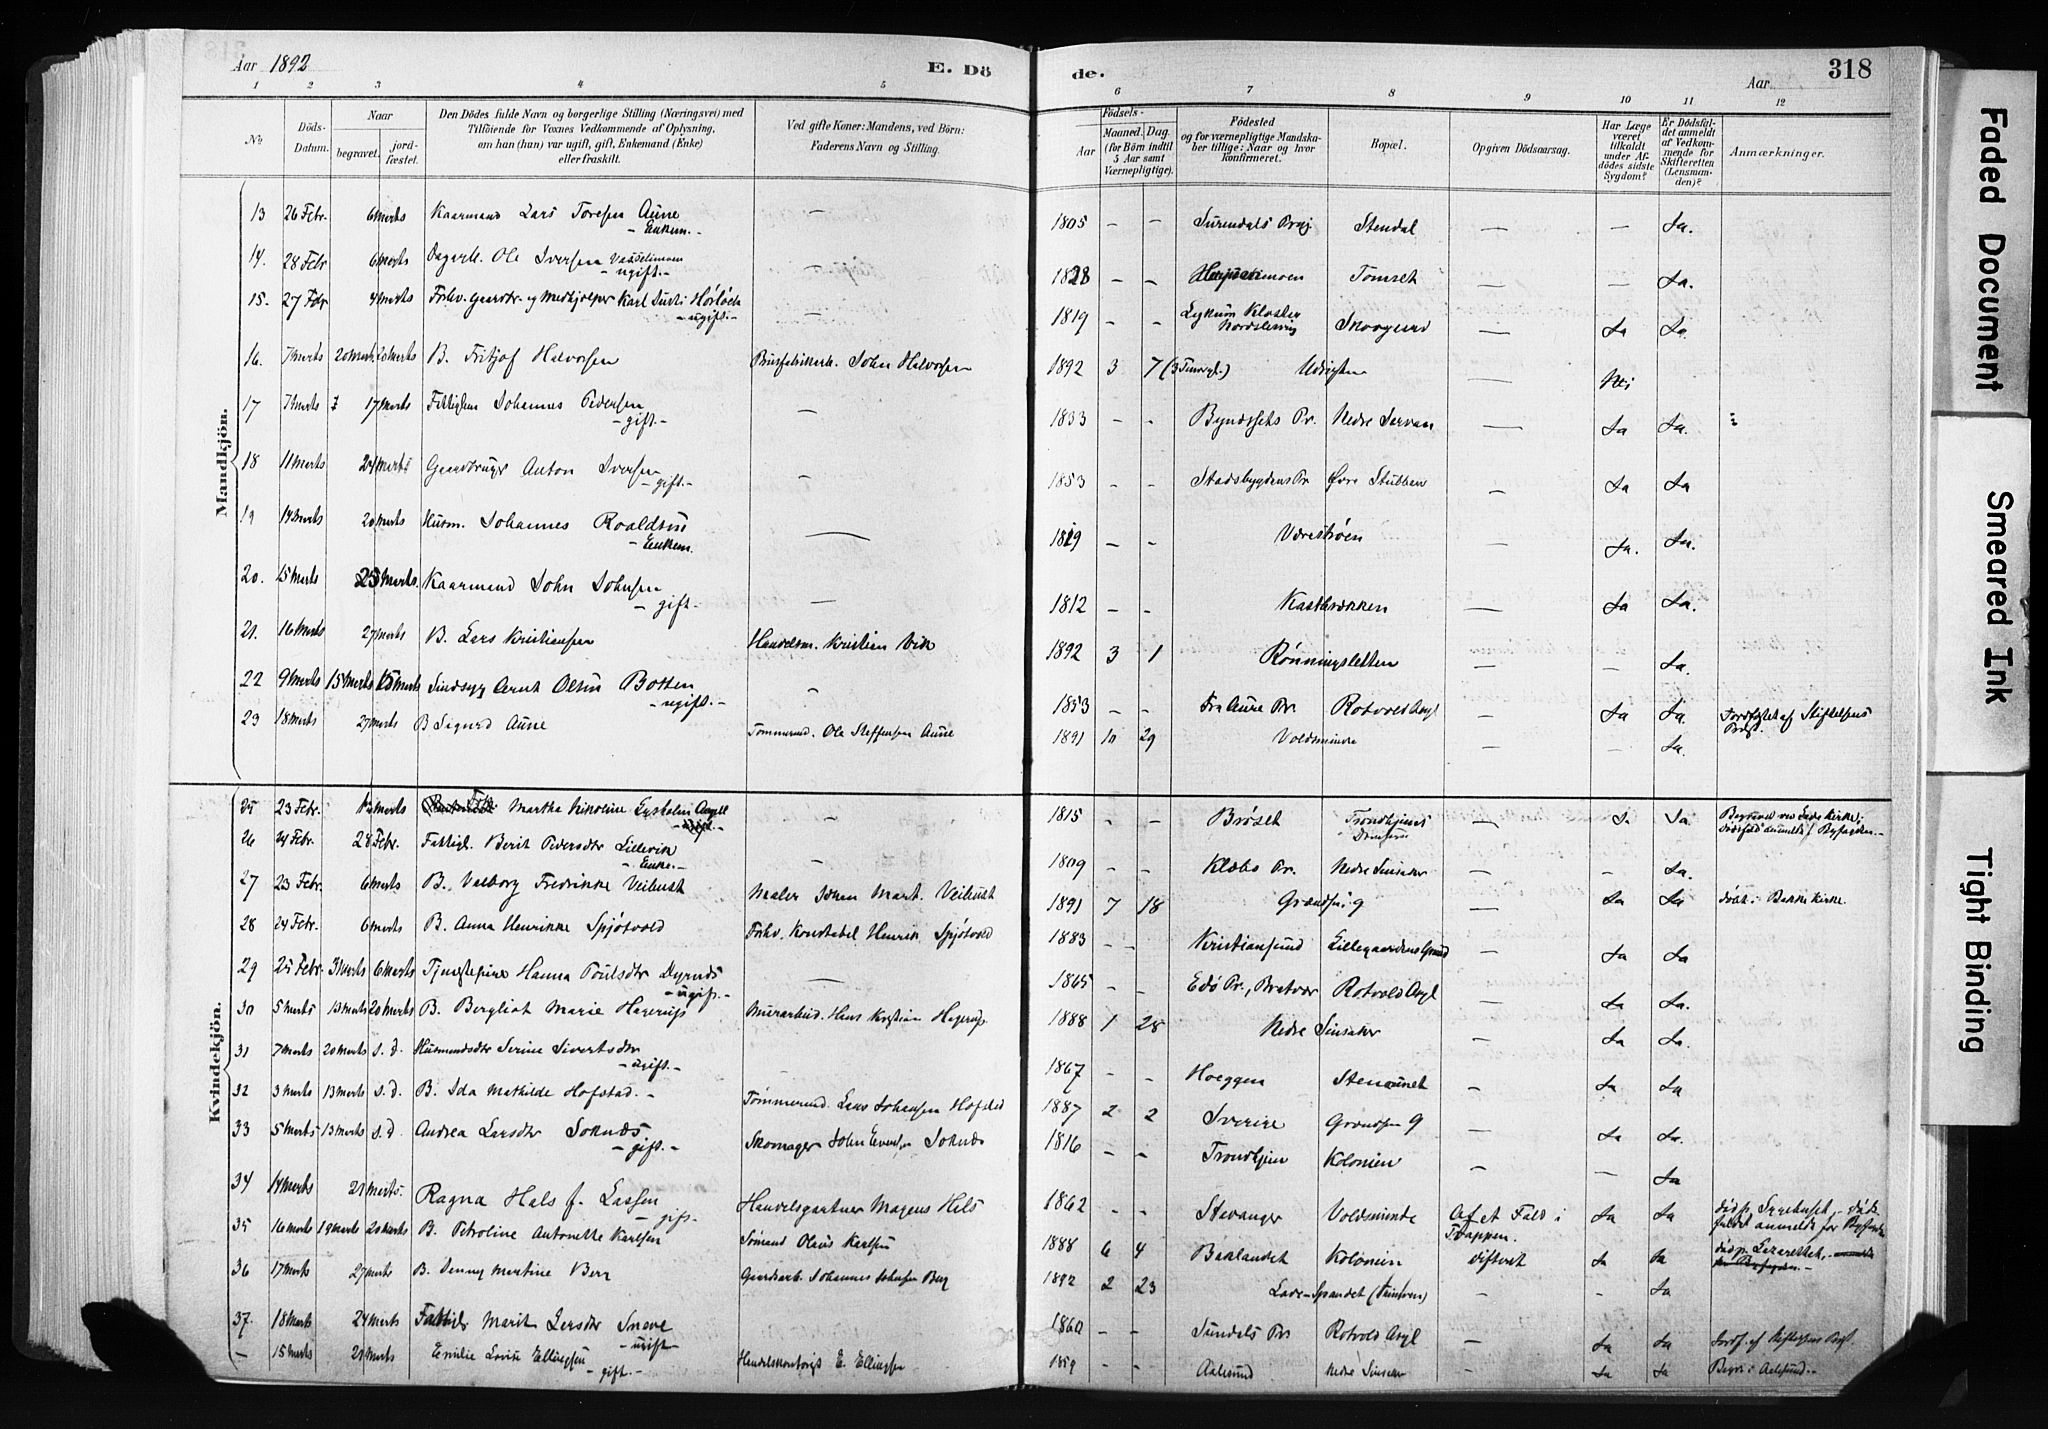 Aar 1892
E. Dö
de.
Aar
318
1 2 3 4 5 6 7 8 9 10 11 12
No
Döds-Datum.
Naar
begravet.
jordfæstet.
Den Dödes fulde Navn og borgerlige Stilling (Næringsvei) med
Tilföiende for Voxnes Vedkommende af Oplysning,
om han (hun) var ugift, gift, Enkemand (Enke)
eller fraskilt.
Ved gifte Koner: Mandens, ved Börn:
Faderens Navn og Stilling.
Födsels-
Aar
Maaned.
Dag.
(for Börn indtil
5 Aar samt
Værnepligtige).
Födested
og for værnepligtige Mandska-
ber tillige: Naar og hvor
konfirmeret.
Bopæl.
Opgiven Dödsaarsag.
Har Læge
været
tilkaldt
under Af-
dödes sidste
Sygdom?
Er Dödsfal-
det anmeldt
af Vedkom-
mende for
Skifteretten
(Lensman-
den)?
Anmærkninger.
Mandkjön.
13 26 Febr. 6 Marts Kaarmand Lars Toresen Aune - Enkem. - — 1805 - - Surendals Prgj. Stendal — — Ja.
14. 28 Febr 6 Marts Ole Iversen - ugift. - — 1828 - - Tomset — — Ja.
15. 27 Febr 4 Marts Forhv. Gaardbr. og Medhjælper Karl - ugift. - — 1819 - - Lykum Kloster Nordslesvig — Ja Ja.
16. 7 Marts 20 Marts 20 Marts B. Fritjof Halvorsen John Halvorsen 1892 3 7 — Nei
17 7 Marts 17 Marts Johannes Pedersen - gift. - — 1833 - - Bynessets Pr. Nedre — Ja Ja.
18 11 Marts 24 Marts Gaardbruger Anton Iversen - gift. - — 1853 - - Stadsbygdens Pr Øvre Stubban — Ja Ja
19 14 Marts 20 Marts Husm. Johannes Roaldsen - Enkem. — 1819 - - Værestrøen Ja. Ja.
20. 15 Marts 25 Marts. Kaarmand John Johnsen - gift. - — 1812 - - Kastbrækken — Ja Ja.
21. 16 Marts 27 Marts B. Lars Kristiansen Handelsm. Kristian Vik 1892 3 1 Rønningsletten — — Ja.
22 9 Marts 15 Marts 15 Marts Sindsyg Arnt Olsen Botten - ugift. - - 1853 - - Fra Aure Pr. Rotvold Asyl — Ja Ja. Jordfæstet af Stiftelsens Præst.
23 18 Marts 27 Marts B Sigurd Aune Tømmermd. Ole Steffensen Aune 1891 10 29 Voldsminde — — Ja.
Kvindekjön.
25 23 Febr. 13 Marts Martha Nikoline - ugift - — 1815 - - Brøset Trondhjems — Ja Ja. Begravet ved Lade Kirke;
26 24 Febr. 28 Febr. Fattigl. Berit Pedersdtr Lillevik - Enke. - — 1809 - - Klæbo Pr. Nedre Sinsaker — - Ja.
27 23 Febr. 6 Marts B. Valborg Fredrikke Veibust Maler Johan Mart. Veibust 1891 7 18 Grændsen 9 — Ja Ja Døbt i Bakke Kirke.
28 24 Febr. 6 Marts B. Anna Henrikke Spjøtvold Forhv. Konstabel Henrik Spjøtvold 1883 - - Kristiansund Lillegaardens — Ja Ja
29 25 Febr. 3 Marts 6 Marts Tjenestepige Hanna Poulsdtr - ugift. - — 1865 - - Edø Pr., Bratvær Rotvold Asyl — Ja Ja.
30 5 Marts 13 Marts 20 Marts B. Bergliot Marie Hagerup Murarbeid. Hans Kristian Hagerup 1888 1 28 Nedre Sinsaker — Ja Ja.
31 7 Marts 20 Marts s. d. Husmandsdtr Serine Sivertsdtr - ugift. - - 1867 - - Hoeggen Stenaunet - Ja Ja
32 3 Marts 13 Marts s. d. B. Ida Mathilde Hofstad. - Tømmermd. Lars Johansen Hofstad 1887 2 2 Sverige Grændsen 9 - Ja Ja.
33 5 Marts 13 Marts s. d Andrea Larsdtr Soknæs - gift. - Skomager John Soknæs 1816 - - Trondhjem Kolonien - — Ja
34 14 Marts 21 Marts. Ragna Hals f. Lassen - gift. - Handelsgartner Magnus Hals 1862 - - Stavanger Voldsminde Af et Fald i Trappen. Ja Ja død p. Sygehuset, - døds-
faldet anmeldt for Byfogden
35 16 Marts 19 Marts 20 Marts B. Petroline Antonette Karlsen Sømand Olaus Karlsen 1888 6 4 Baklandet Kolonien difterit Ja Ja død p. Lazarettet,
36 17 Marts 27 Marts B. Jenny Martine Berg Gaardarb. Johannes Johnsen Berg 1892 2 23 - - Ja
37. 18 Marts 24 Marts Fattigl. Marit Larsdtr - ugift - 1860 - - Sundals Pr Rotvold Asyl — Ja Ja Jordf. af Stiftelsens Præst.
- 15 Marts 21 Marts Emilie Lovise Ellingsen - gift. - E. Ellingsen 1859 - - Aalesund Nedre Sinsaker - Ja Ja Begr. i Aalesund. -
Faded Document
Smeared Ink
Tight Binding